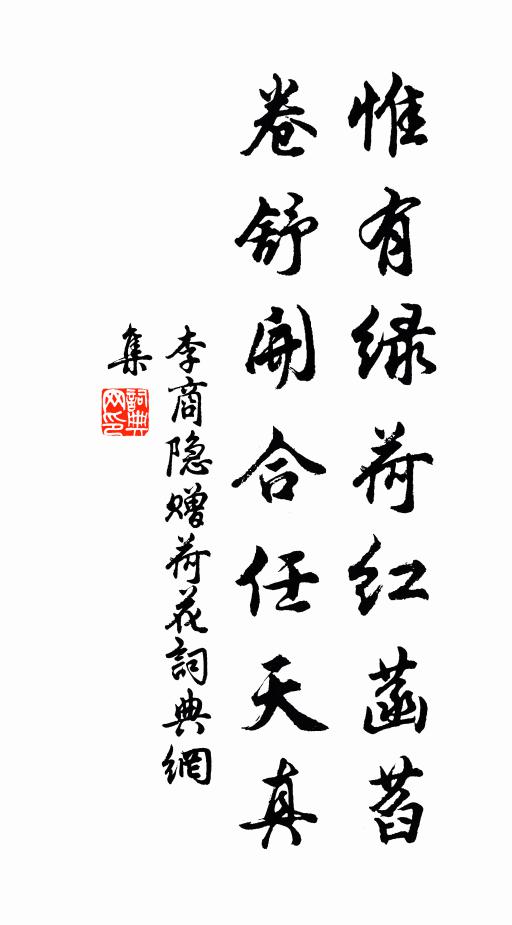 惟有绿荷红菡萏
卷舒開合任天真
李商隐赠荷花詞典網
集
詞典
网印